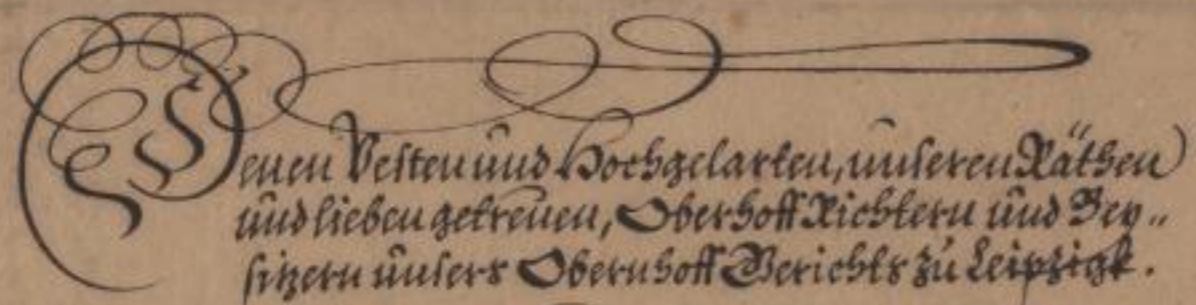 Denen Vesten und Hochgelarten, unseren Räthen
und lieben getreuen, Oberhoff Richtern und Bey„
sitzern unsers Obernhoff Gerichts zu Leipzigk.